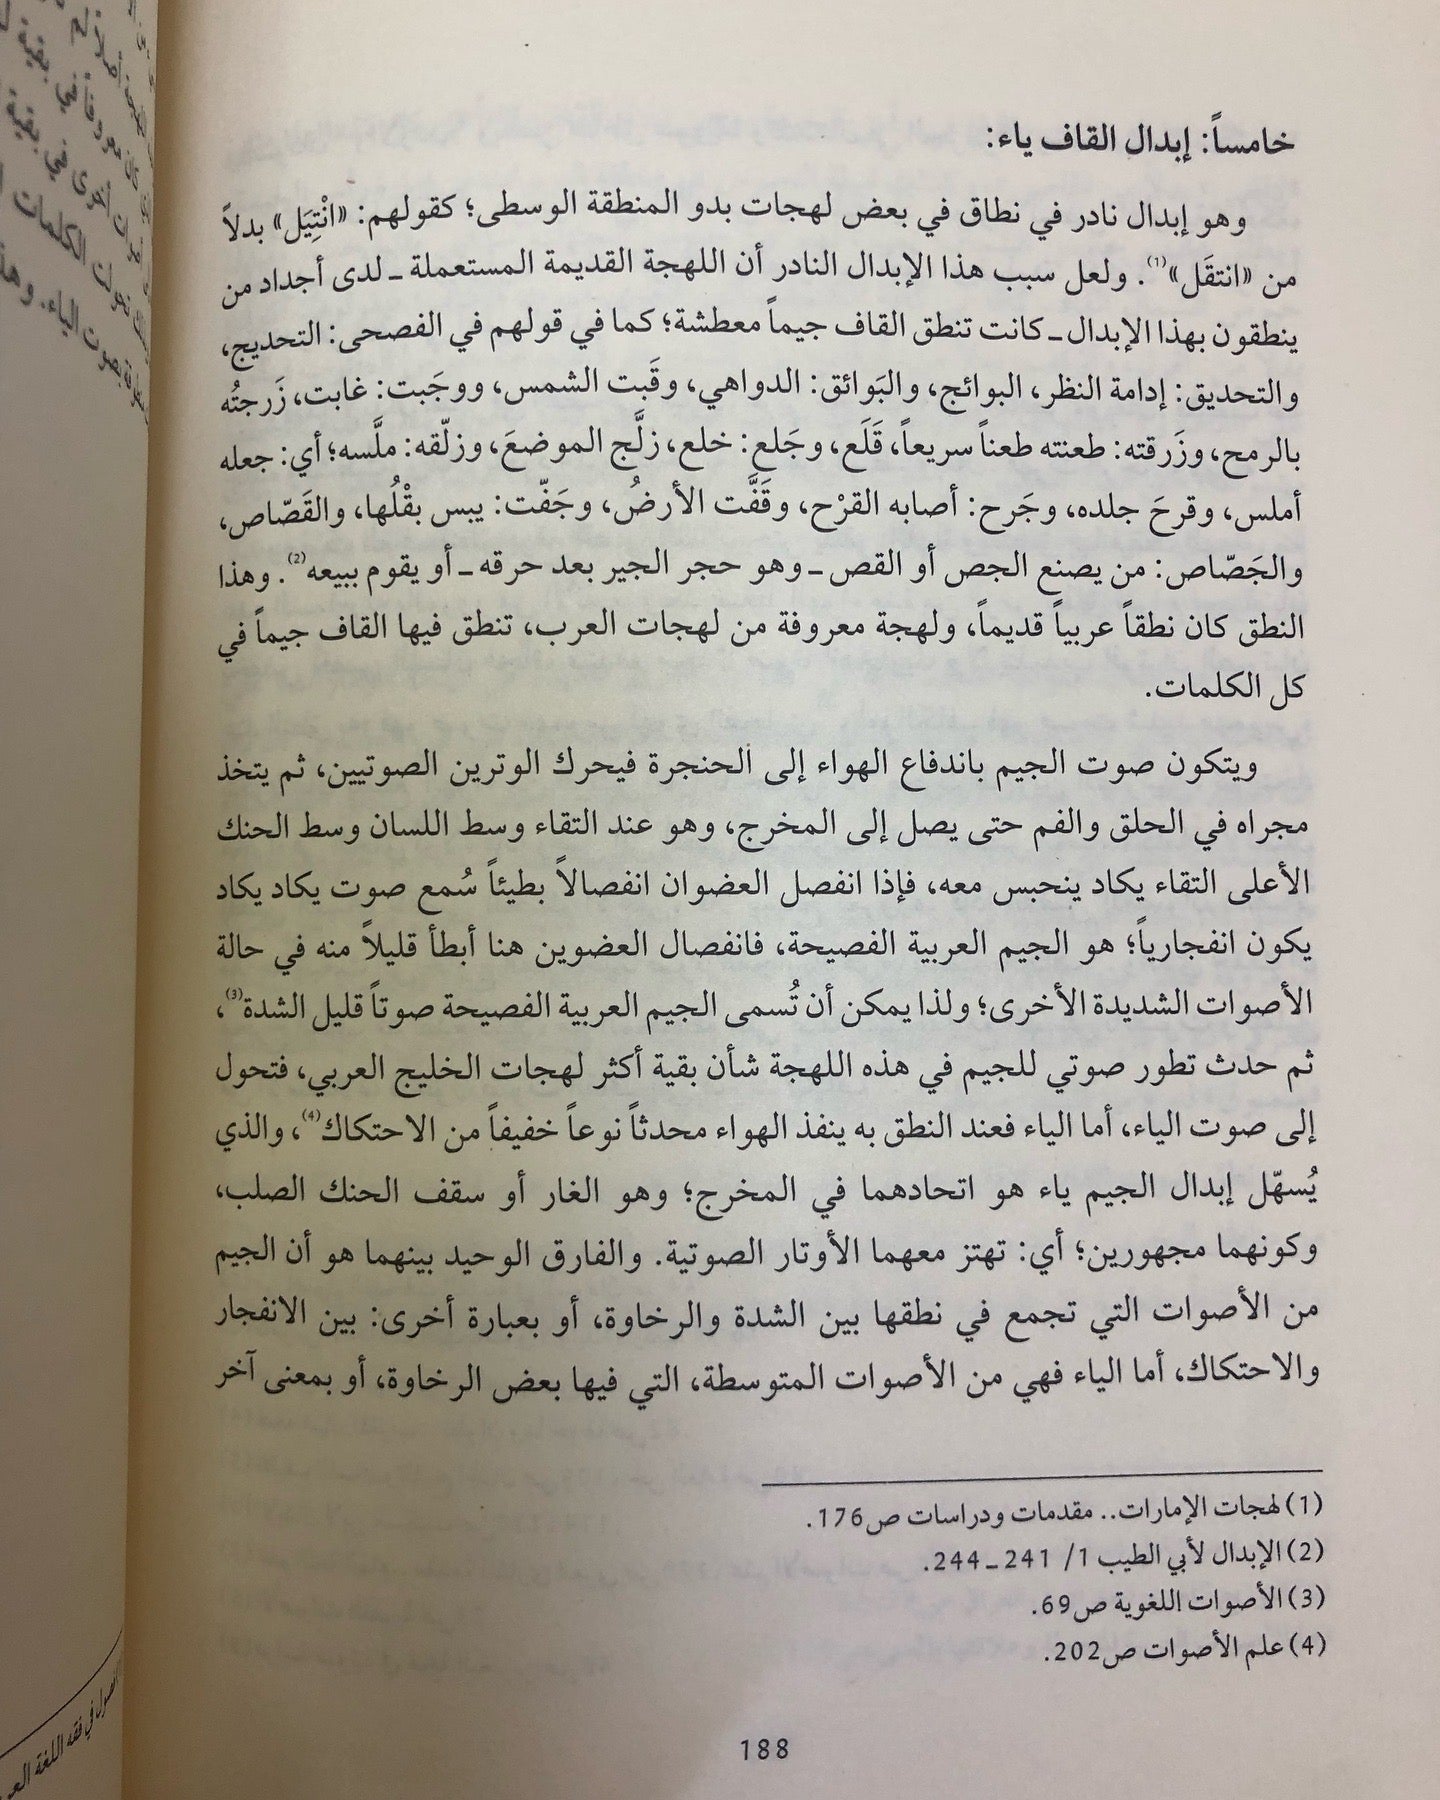 خامساً: إبدال القاف ياء:
وهو إبدال نادر في نطاق في بعض لهجات بدو المنطقة الوسطى؛ كقولهم: «انْتِيَل» بدلاً
من «انتقَل»(1). ولعل سبب هذا الإبدال النادر أن اللهجة القديمة المستعملة ـ لدى أجداد من
ينطقون بهذا الإبدال ـ كانت تنطق القاف جيماً معطشة؛ كما في قولهم في الفصحى: التحديج،
والتحديق: إدامة النظر، البوائج، والبَوائق: الدواهي، وقَبت الشمس، ووجَبت: غابت، زَرجتُه
بالرمح، وزَرقته: طعنته طعناً سريعاً، قَلَع، وجَلع: خلع، زلَّج الموضعَ، وزلّقه: ملَّسه؛ أي: جعله
أملس، وقرحَ جلده، وجَرح: أصابه القرْح، وقَفَّت الأرضُ، وجَفّت: يبس بقْلُها، والقَصّاص،
والجَصّاص: من يصنع الجص أو القص ـ وهو حجر الجير بعد حرقه ـ أو يقوم ببيعه(2). وهذا
النطق كان نطقاً عربياً قديماً، ولهجة معروفة من لهجات العرب، تنطق فيها القاف جيماً في
كل الكلمات.
ويتكون صوت الجيم باندفاع الهواء إلى الحنجرة فيحرك الوترين الصوتيين، ثم يتخذ
مجراه في الحلق والفم حتى يصل إلى المخرج، وهو عند التقاء وسط اللسان وسط الحنك
الأعلى التقاء يكاد ينحبس معه، فإذا انفصل العضوان انفصالاً بطيئاً سُمع صوت يكاد يكاد
يكون انفجارياً؛ هو الجيم العربية الفصيحة، فانفصال العضوين هنا أبطأ قليلاً منه في حالة
الأصوات الشديدة الأخرى؛ ولذا يمكن أن تُسمى الجيم العربية الفصيحة صوتاً قليل الشدة(3)،
ثم حدث تطور صوتي للجيم في هذه اللهجة شأن بقية أكثر لهجات الخليج العربي، فتحول
إلى صوت الياء، أما الياء فعند النطق به ينفذ الهواء محدثاً نوعاً خفيفاً من الاحتكاك(4)، والذي
يُسهّل إبدال الجيم ياء هو اتحادهما في المخرج؛ وهو الغار أو سقف الحنك الصلب،
وكونهما مجهورين؛ أي: تهتز معهما الأوتار الصوتية. والفارق الوحيد بينهما هو أن الجيم
من الأصوات التي تجمع في نطقها بين الشدة والرخاوة، أو بعبارة أخرى: بين الانفجار
والاحتكاك، أما الياء فهي من الأصوات المتوسطة، التي فيها بعض الرخاوة، أو بمعنى آخر
(1) لهجات الإمارات.. مقدمات ودراسات ص176.
(2) الإبدال لأبي الطيب 1/ 241 ـ 244.
(3) الأصوات اللغوية ص69.
(4) علم الأصوات ص202.
188